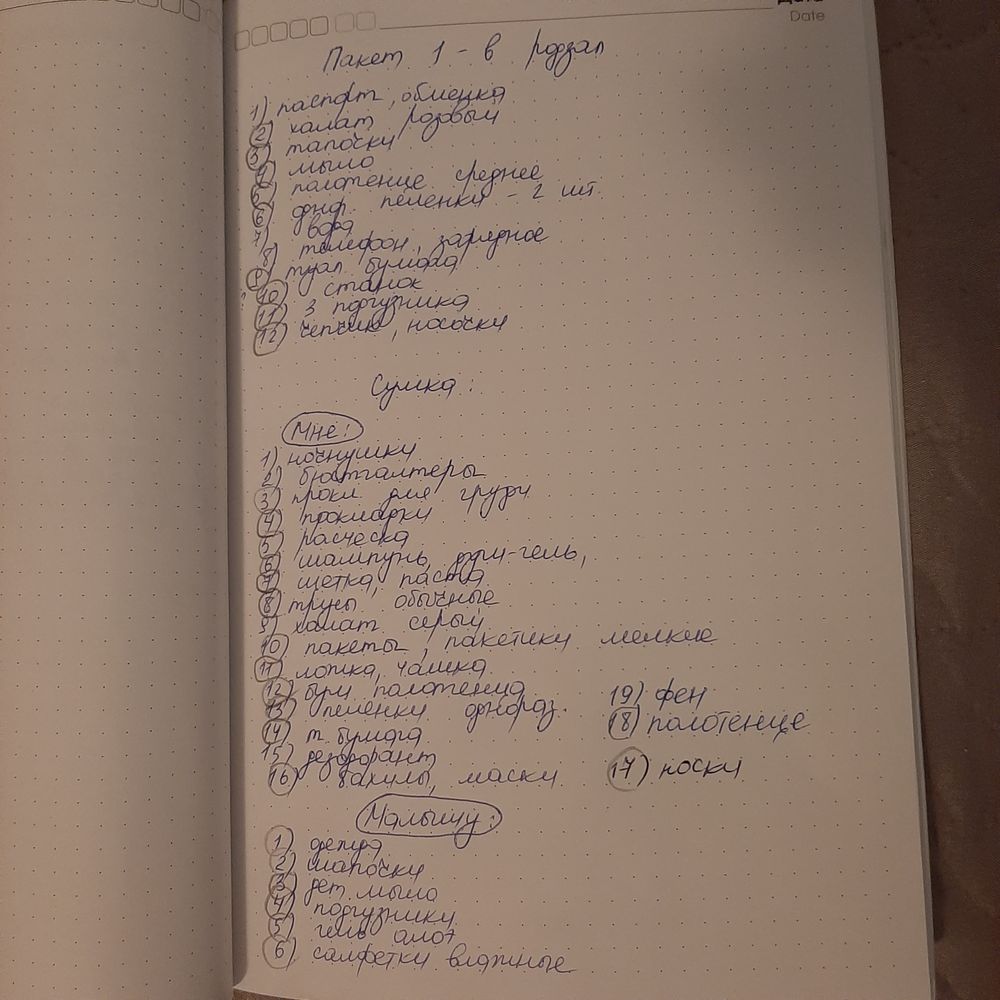 Дата
Date
Пакет 1 - в родзал
1) паспорт, обменка
2) халат розовый
3) тапочки
4) мыло
5) полотенце среднее
6) однр. пеленки - 2 шт.
7) вода
8) телефон, зарядное
9) туал. бумага
10) станок
11) 3 подгузника
12) чепчик, носочки
Сумка:
Мне:
1) ночнушки
2) бюстгалтеры
3) прокл для груди
4) прокладки
5) расческа
6) шампунь, душ-гель,
7) щетка, паста
8) трусы обычные
9) халат серый
10) пакеты, пакетики мелкие
11) ложка, чашка
12) бум полотенца
13) пеленки однораз.
14) т. бумага
15) дезодорант
16) бахилы, маски
19) фен
18) полотенце
17) носки
Малышу:
1) дежда
2) шапочки
3) дет. мыло
4) подгузники
5) гель
6) салфетки влажные